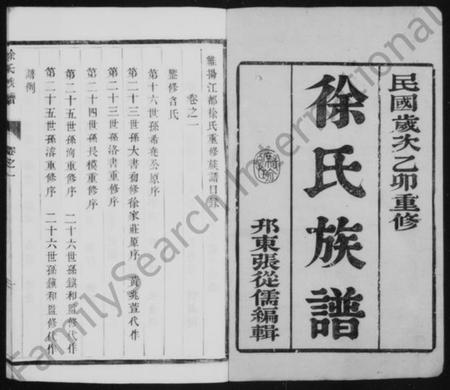 民國歲次乙卯重修
徐氏族譜
邗東張從儒編輯
維揚江都徐氏重修族譜目錄
卷之一
鑒修名氏
第十六世孫希堯公原序
第二十三世孫大書創修徐家莊原序 黃兆萱代作
第二十三世孫洛書重修序
第二十四世孫長模重修序
第二十五世孫海重修序 二十六世孫鎮和監修代作
第二十五世孫洛重修序 二十六世孫鎮和監修代作
譜例
徐氏族譜
卷之一
FamilySearch International